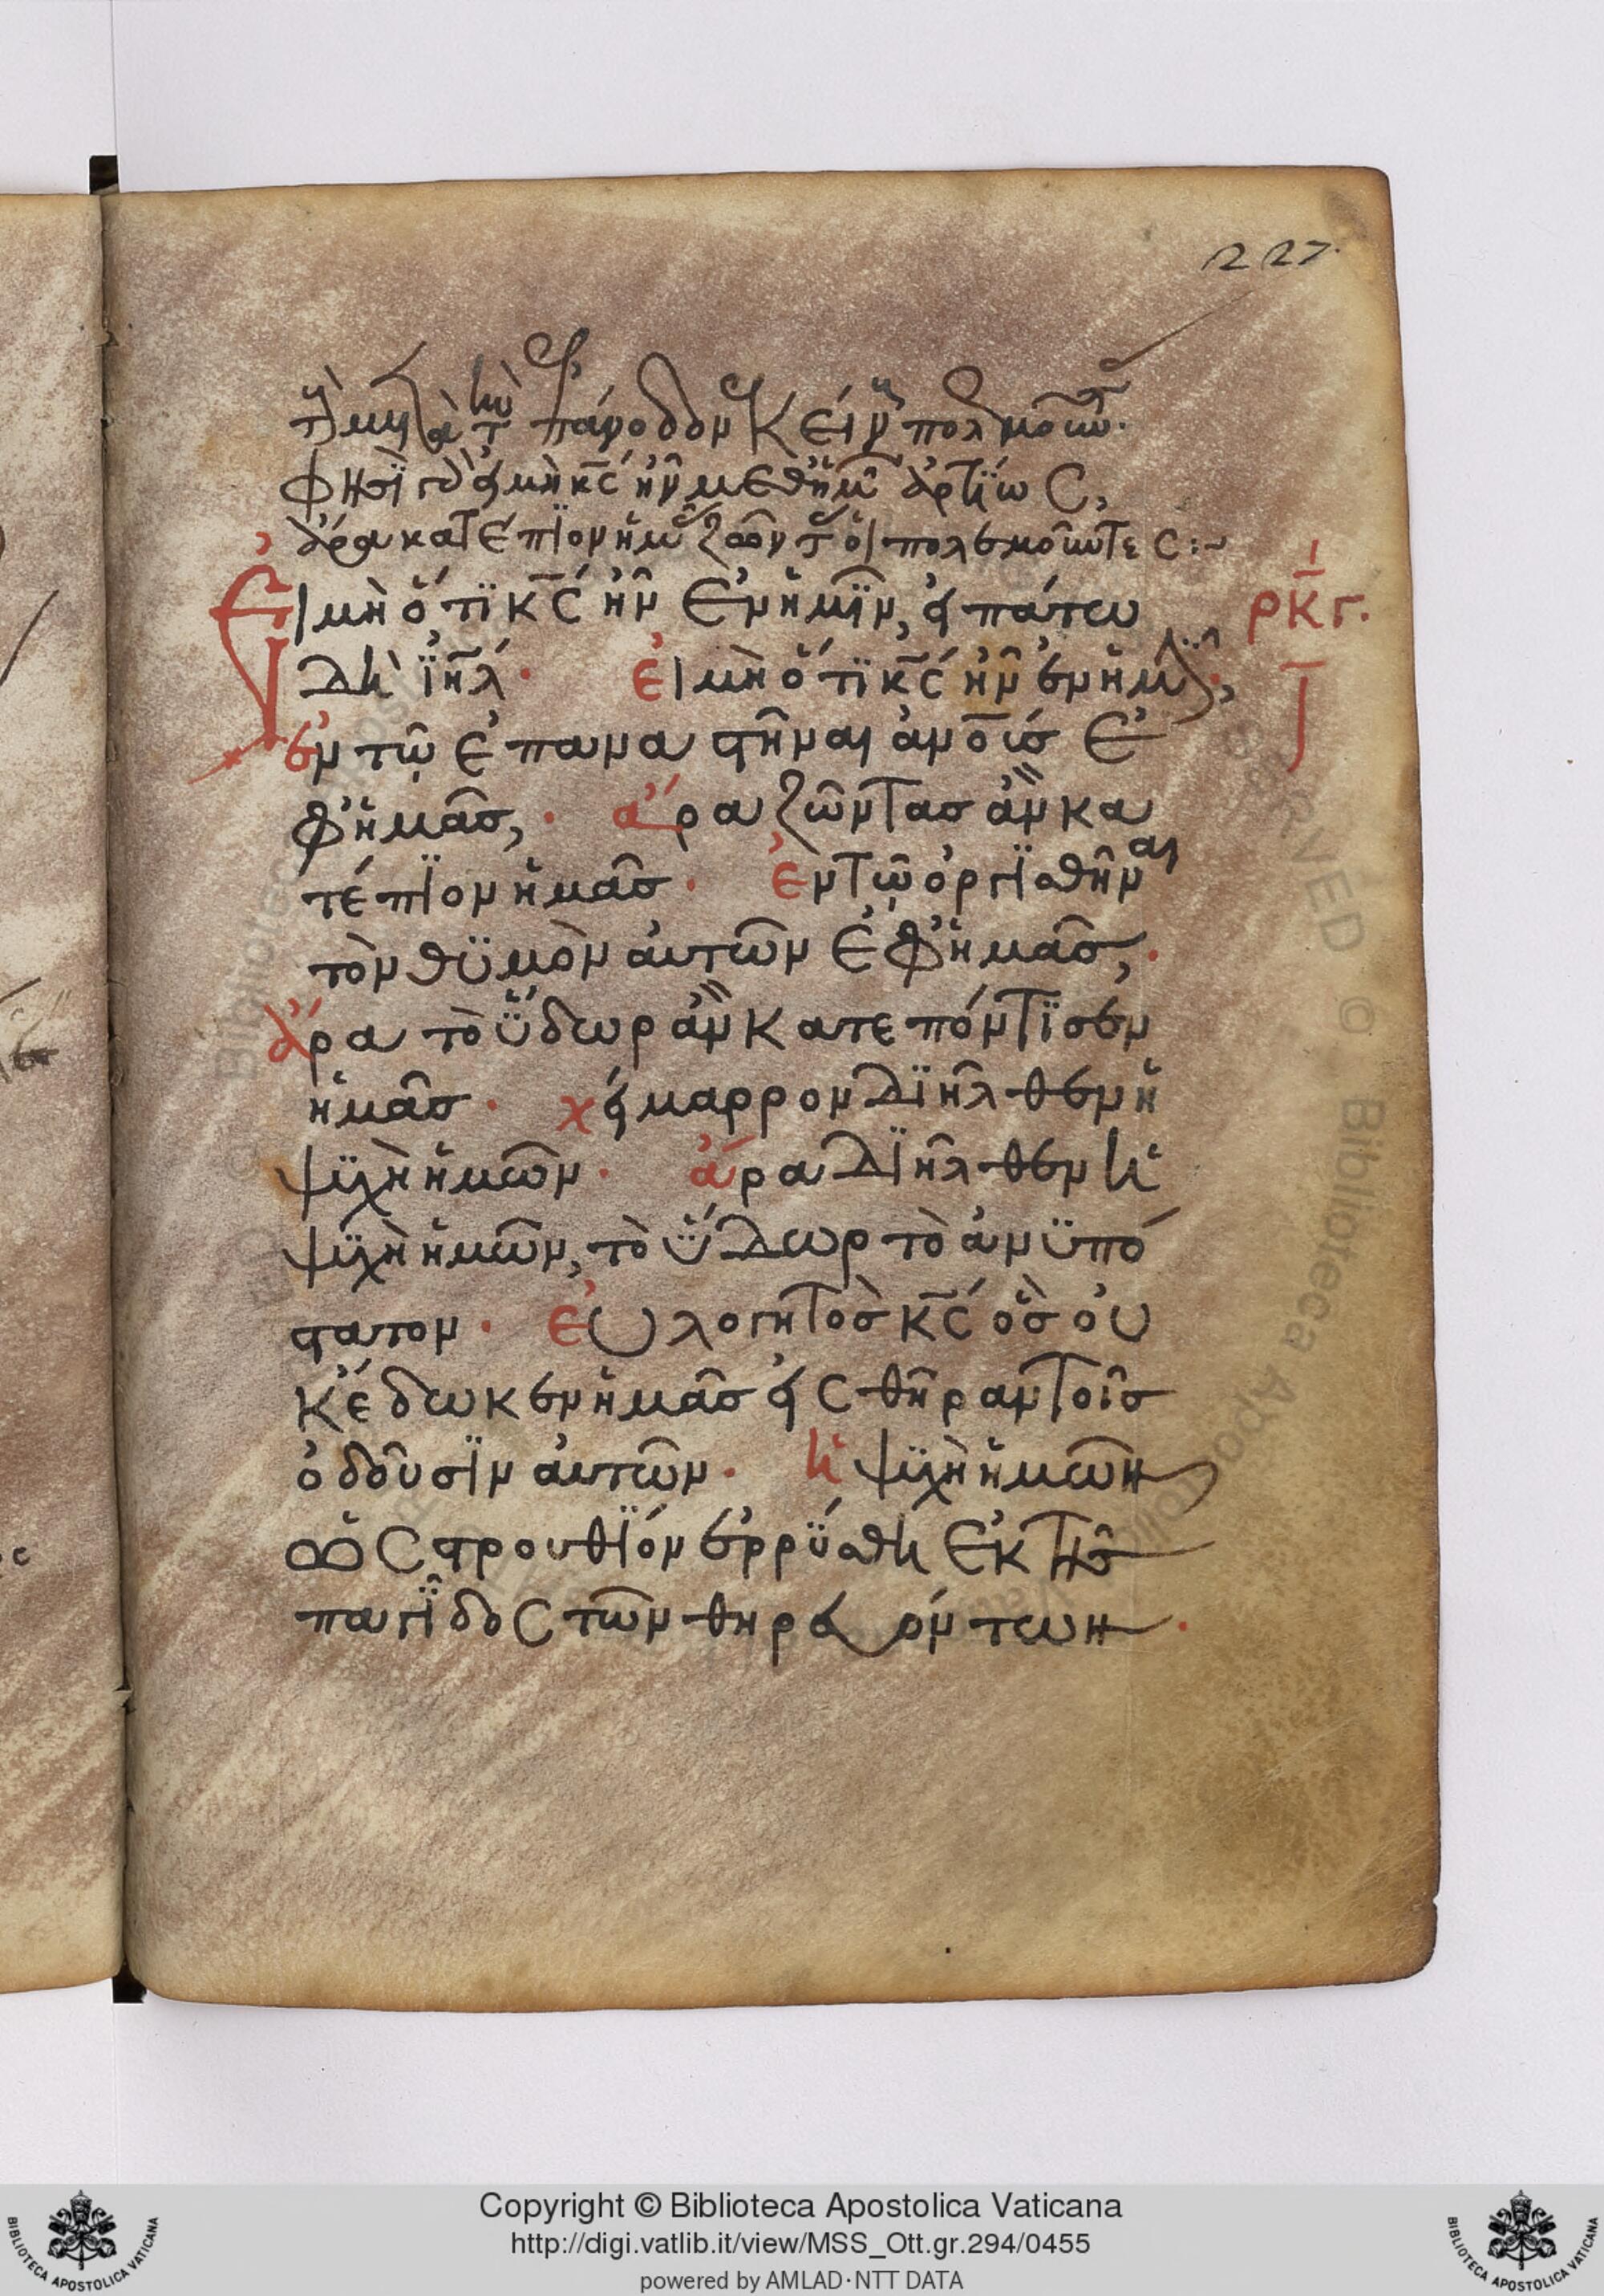 227.
φησὶ γὰρ εἰ μὴ κ̅ς̅ ἦν μεθ ἡμῶν ἀρτίως,
ἄρα κατέπιον ἡμᾶς ζῶντας οἱ πολεμοῦντες :~
Εἰ μὴ ὅτϊ κ̅ς̅ ἦν ἐν ἡμῖν, εἰπάτω
ρκγ.
δὴ ϊη̅λ· εἰ μὴ ὅτϊ κ̅ς̅ ἦν ἐν ἡμῖν,
ἐν τῷ ἐπαναστῆναι ἀνο̅υς̅ ἐ
φ ἡμᾶς,· ἄρα ζῶντας ἂν κα
τέπϊον ἡμᾶς· ἐν τῷ ὀργϊσθῆναι
τὸν θϋμὸν αὐτῶν ἐφ ἡμᾶς,·
ἄρα τὸ ὕδωρ ἂν κατεπόντϊσεν
ἡμᾶς· χείμαρρον διῆλθεν ἡ
ψϋχὴ ἡμῶν· ἄρα διῆλθεν ἡ
ψϋχὴ ἡμῶν, τὸ ὕδωρ τὸ ἀνϋπό
στατον· εὐλογητὸς κ̅ς̅ ὃς οὐ
κ ἔδωκεν ἡμᾶς εἰς θῆραν τοῖς
ὀδοῦσϊν αὐτῶν· ἡ ψϋχὴ ἡμῶν
ὡς στρουθϊόν ἐρρύσθη ἐκ τῆς
παγῖδος τῶν θηρευόντων·
Copyright © Biblioteca Apostolica Vaticana
http://digi.vatlib.it/view/MSS_Ott.gr.294/0455
powered by AMLAD·NTT DATA
BIBLIOTECA APOSTOLICA VATICANA
BIBLIOTECA APOSTOLICA VATICANA